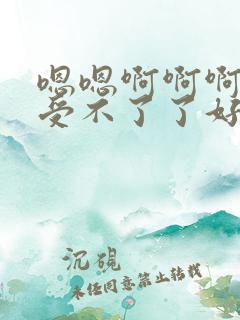 嗯嗯啊啊啊
受不了了好
沉砚
未经同意禁止转载